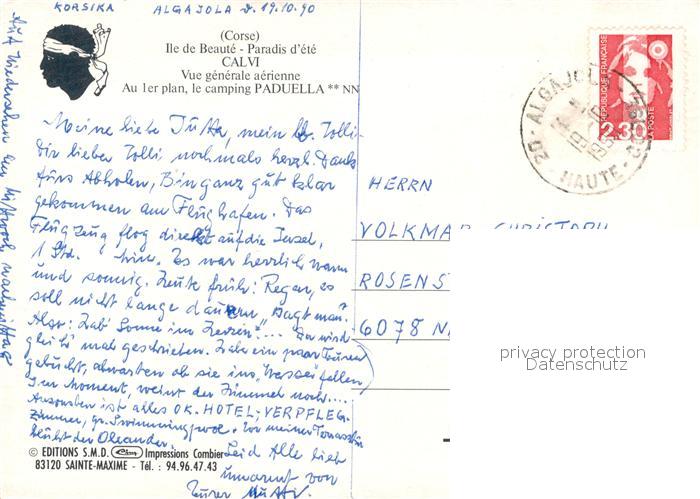 KORSIKA ALGAJOLA d. 19.10.90
(Corse)
Ile de Beauté - Paradis d'été
CALVI
Vue générale aérienne
Au 1er plan, le camping PADUELLA ** NN
Meine liebe Jutta, mein lb. Tolli -
Dir lieber Tolli nochmals herzl. Dank
fürs Abholen, Bin ganz gut klar
gekommen am Flughafen. Das
Flugzeug flog direkt auf die Insel,
1 Std. hin. Es war herrlich warm
und sonnig. Heute früh: Regen, es
soll nicht lange dauern, sagt man?
Also: Hab' Sonne im Herzen!... Da wird
gleich mal geschrieben. Habe ein paar Touren
gebucht, abwarten ob sie ins "Wasser" fallen
Im Moment, weint der Himmel noch....
Ansonsten ist alles OK. HOTEL, VERPFLEG.
Zimmer, gr. Swimmingpool. Vor meiner Terrassentür
blüht der Oleander.
Seid Alle lieb
umarmt von
Eurer Mutti.
Auf Wiedersehen am Mittwoch nachmittag
© EDITIONS S.M.D. Impressions Combier
83120 SAINTE-MAXIME - Tél. : 94.96.47.43
REPUBLIQUE FRANÇAISE
2,30
LA POSTE
20 - ALGAJOLA
HAUTE - CORSE
HERRN
VOLKMAR CHRISTOPH
ROSENS
6078 N
privacy protection
Datenschutz